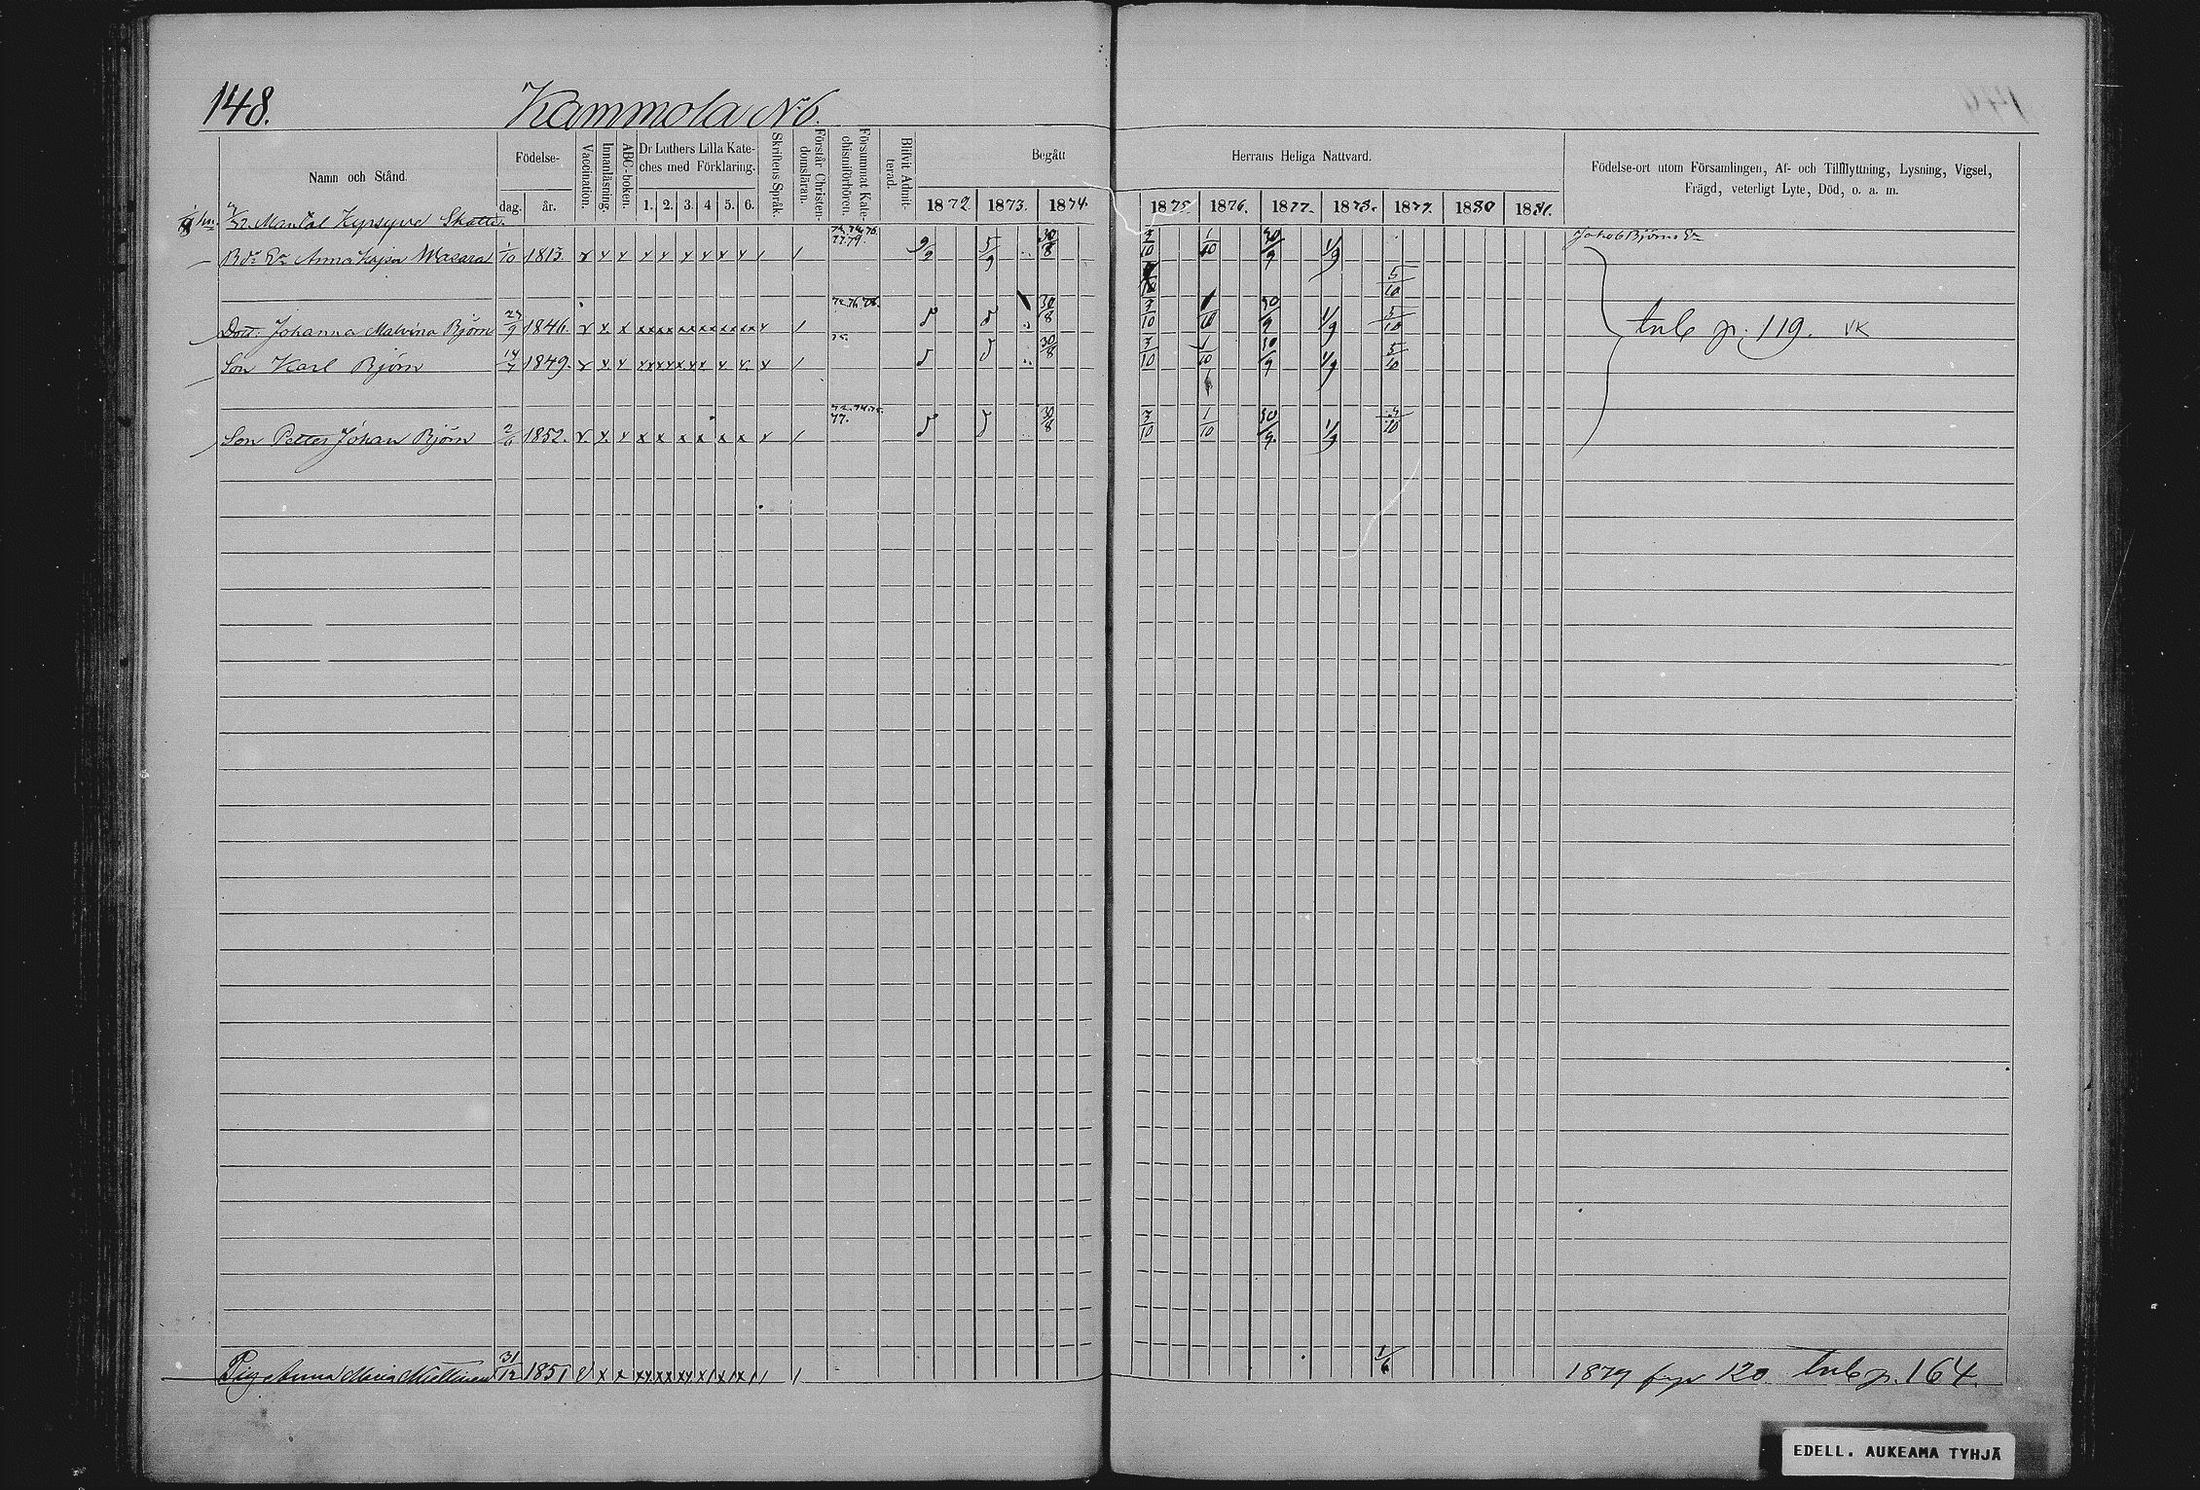 148.
Kammola No 6.
Namn och Stånd.
Födelse-
dag. år.
Vaccination.
Innanläsning.
ABC-boken.
Dr Luthers Lilla Kate-
ches med Förklaring.
1. 2. 3. 4 5. 6.
Skriftens Språk.
Förstår Christen-
domsläran.
Försummat Kate-
chismiförhören.
Blifvit Admit-
terad.
Begått
Herrans Heliga Nattvard.
1872. 1873. 1874. 1875. 1876. 1877. 1878. 1879. 1880 1881.
Födelse-ort utom Församlingen, Af- och Tillflyttning, Lysning, Vigsel,
Frägd, veterligt Lyte, Död, o. a. m.
Mantal Kypsyvä Skatte.
Jakob Björns Ea
Bdr Ea Anna Kajsa Masara 1/10 1813 9/9 5/9 30/8 3/10 1/10 30/9 1/9 5/10
Dotr. Johanna Malvina Björn 27/9 1846. 30/8 3/10 1/10 30/9 1/9 5/10
tnb p. 119. VK
Son Karl Björn 14/7 1849. 75. 30/8 3/10 1/10 30/9 1/9 5/10
Son Petter Johan Björn 2/6 1852. 77. 30/8 3/10 1/10 30/9 1/9 5/10
Pig. Anna Maria Miettinen 31/12 1851 1/6 1879 fr p 120 tnb p. 164.
EDELL. AUKEAMA TYHJÄ